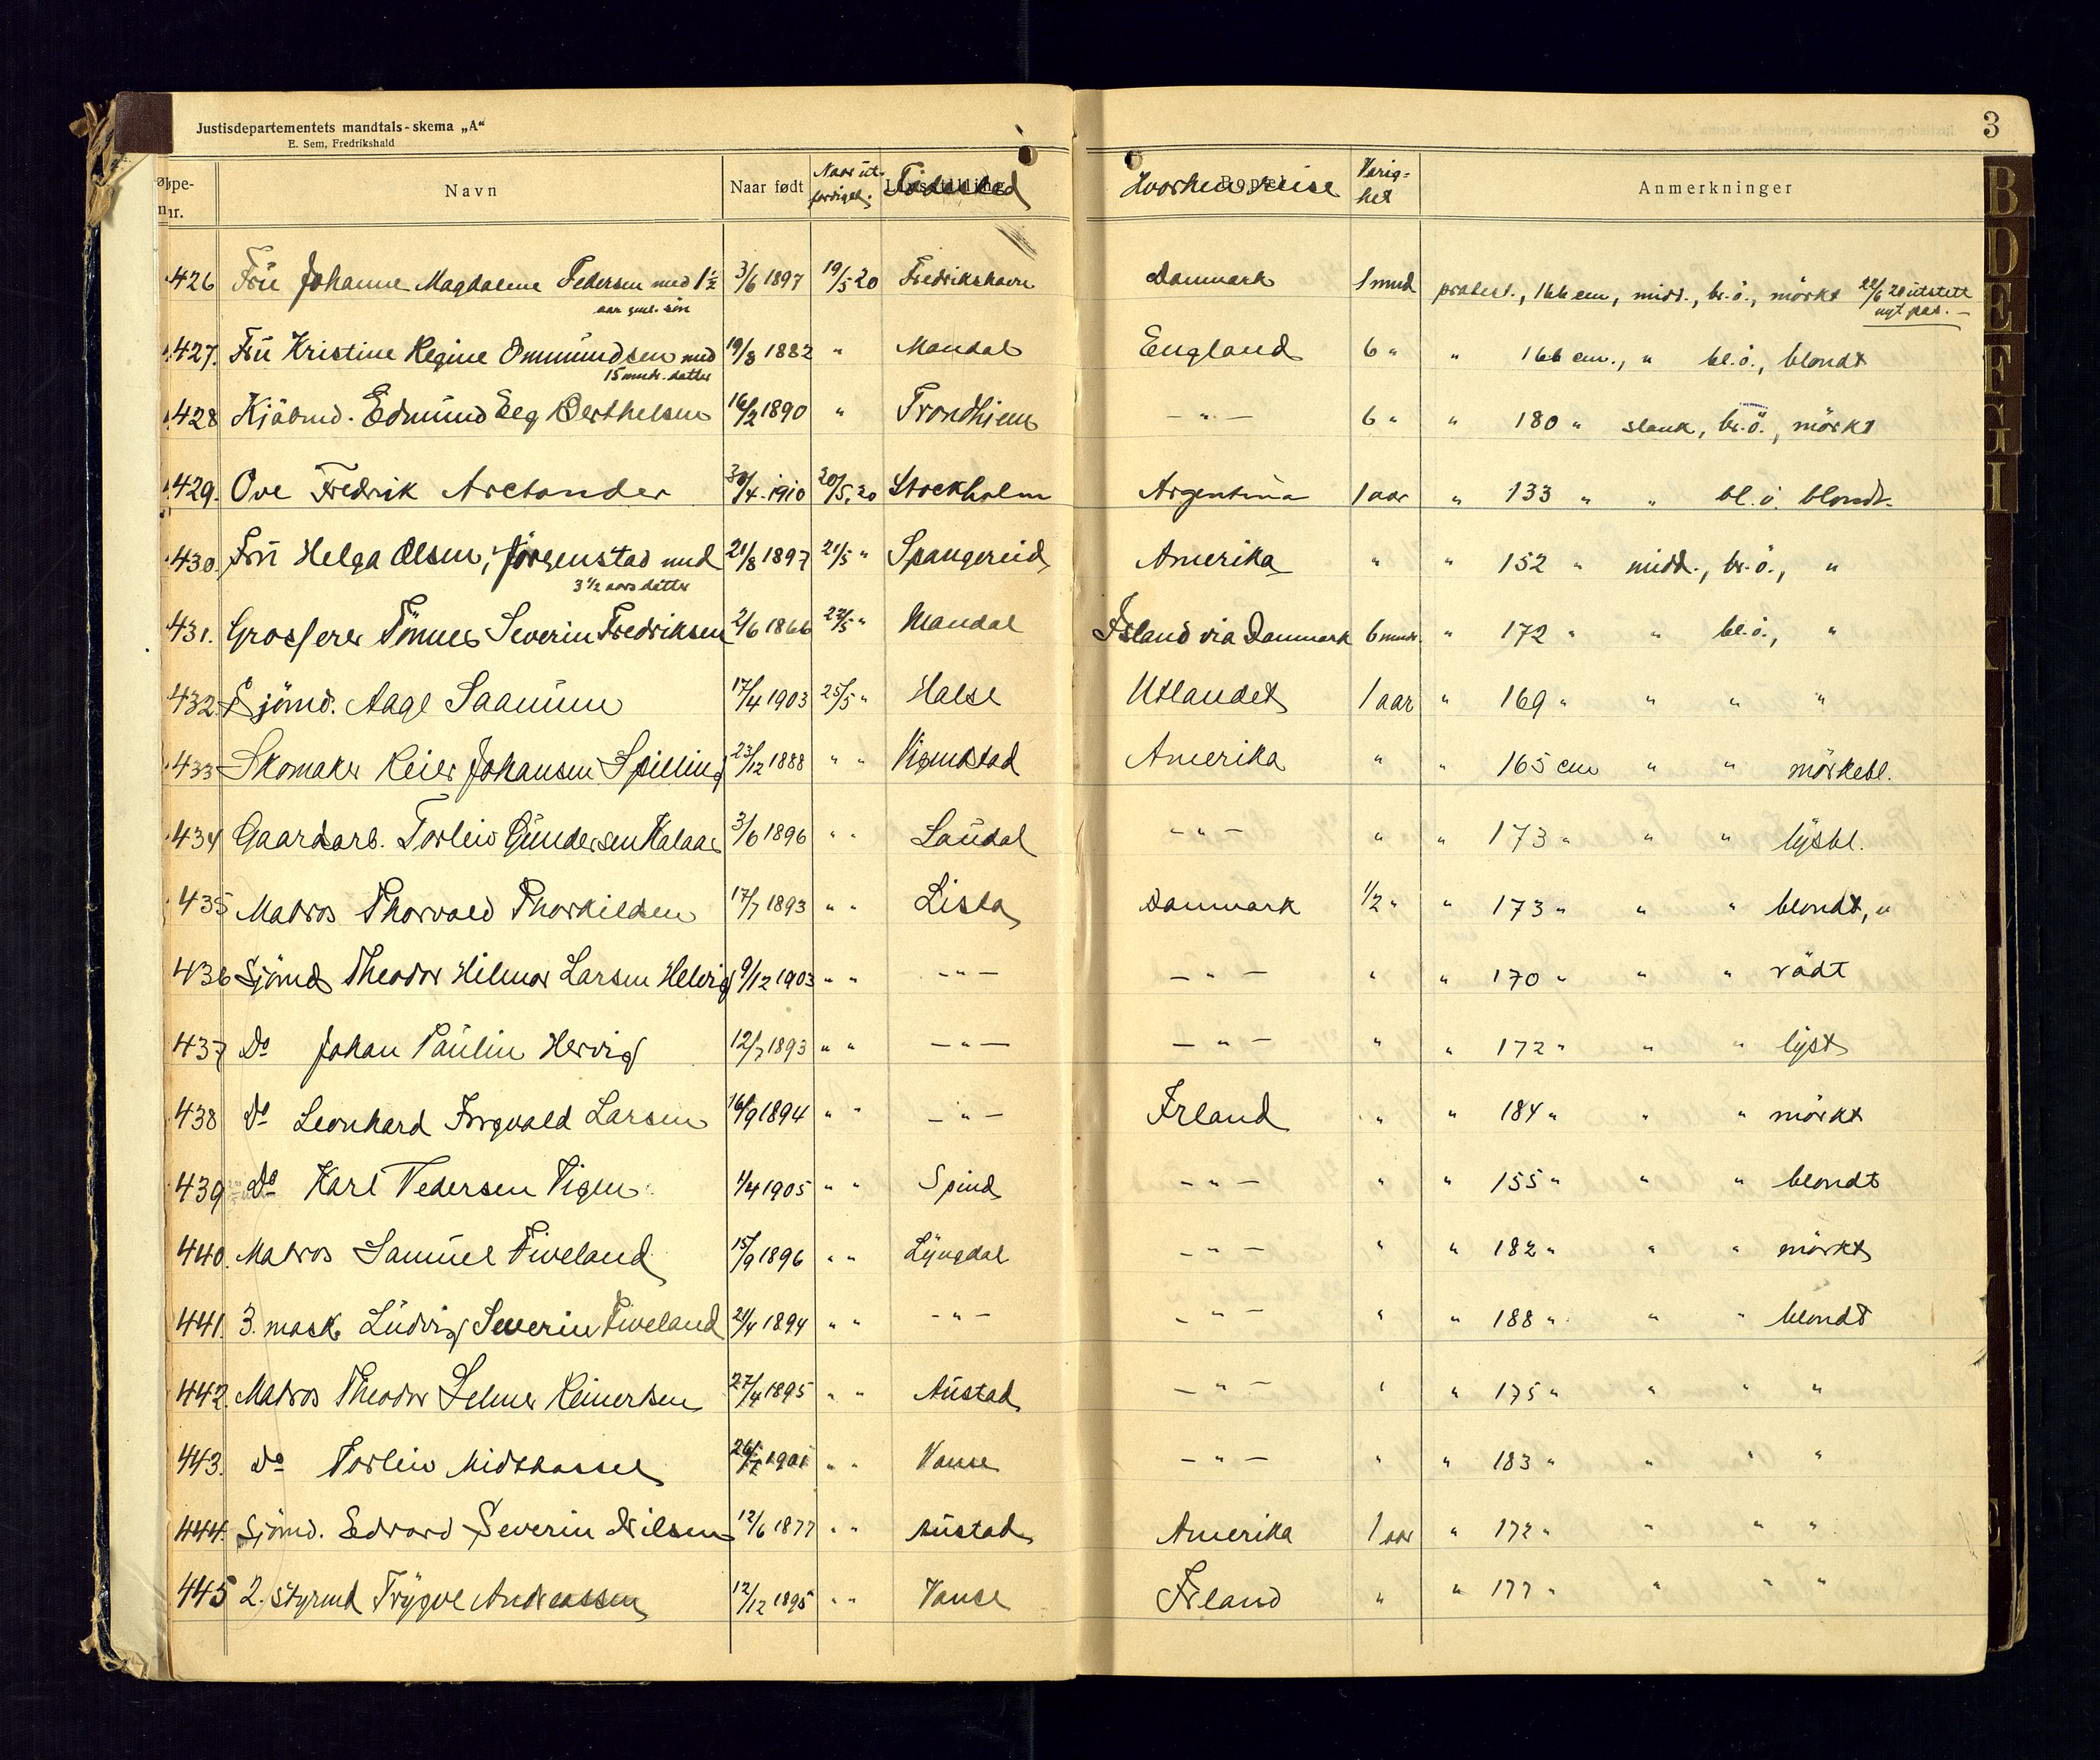 Justisdepartementets mandtals-skema „A“
E. Sem, Fredrikshald
3
Løpe-nr. Navn Naar født Naar ut-ferdiget. Fødested Hvorhen reise Varig-het Anmerkninger
426 Frü Johanne Magdalene Pedersen med 1½ 3/6 1897 19/5 20 Fredrikshavn Danmark 1 mnd protest., 166 cm, midd., br.ö., mörkt 22/6 20 utstett
aar gml. sön nyt pas. —
427. Frü Kristine Regine Ommündsen med 19/8 1882 " Mandal England 6 " " 166 cm., " bl.ö., blondt
15 mndr. datter
428 Kjöbmd. Edmünd Eeg Berthelsen 16/2 1890 " Trondhjem — " — 6 " " 180 " slank, br.ö., mörkt
429. Ove Fredrik Arctander 30/4 1910 20/5 20 Stockholm Argentina 1 aar " 133 " " bl.ö. blondt.
430. Frü Helga Olsen, Jörgenstad med 21/8 1897 21/5 " Spangereid Amerika " " 152 " midd., br.ö., "
3 ½ aars datter
431. Grosserer Tönnes Severin Fredriksen 2/6 1866 22/5 " Mandal Island via Danmark 6 mndr. " 172 " " bl.ö., "
432. Sjömd. Aage Saanüm 17/4 1903 25/5 " Halse Utlandet 1 aar " 169 " " " "
433 Skomaker Reier Johansen Spilling 23/12 1888 " " Vigmostad Amerika " " 165 cm " " mörkebl.
434 Gaardarb. Torleiv Gündersen Kalaas 3/6 1896 " " Laüdal — " — " " 173 " " " lysbl.
435 Matros Thorvald Thorkildsen 17/7 1893 " " Lista Danmark 1/2 " " 173 " " " blondt, "
436 Sjömd Theodor Hilmar Larsen Helvig 9/12 1903 " " — " — — " — " " 170 " " " rödt
437 Do Johan Paülin Hervig 12/7 1893 " " — " — — " — " " 172 " " " lyst
438 Do Leonhard Ingvald Larsen 16/9 1894 " " — " — Irland " " 184 " " " mörkt
439 Do Karl Pedersen Vigen 1/4 1905 " " Spind — " — " " 155 " " " blondt
440. Matros Samüel Fiveland 15/9 1896 " " Lyngdal — " — " " 182 " " " mörkt
441. 3. mask. Lüdvig Severin Fiveland 21/4 1894 " " — " — — " — " " 188 " " " blondt
442. Matros Theodor Selmer Reinertsen 27/4 1895 " " Aüstad — " — " " 175 " " " "
443. Do Torleiv Midthassel 1901 " " Vanse — " — " " 183 " " " "
444. Sjömd. Edvard Severin Nilsen 12/6 1877 " " Aüstad Amerika 1 aar " 172 " " " "
445 2. styrmd Trygve Andreassen 12/12 1895 " " Vanse Irland " " 177 " " " "
B
D
E
F
G
H